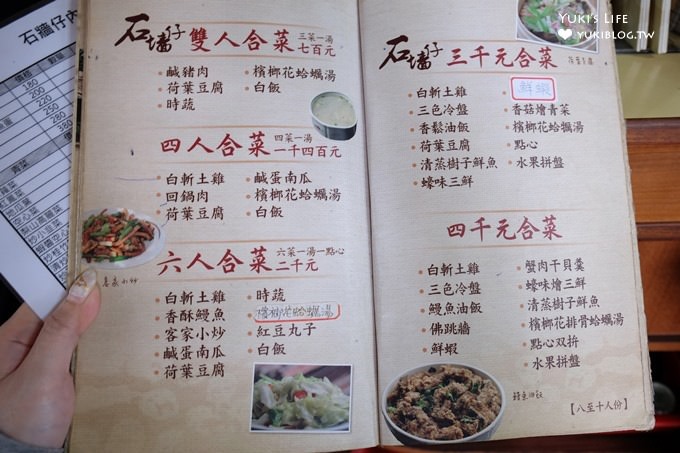 YUKI's LIFE
YUKIBLOG.TW
石牆仔內
180
200
220
250
280
石墻仔 雙人合菜 三菜一湯 七百元
鹹豬肉
荷葉豆腐
時蔬
檳榔花蛤蠣湯
白飯
四人合菜 四菜一湯 一千四百元
白斬土雞
回鍋肉
荷葉豆腐
鹹蛋南瓜
檳榔花蛤蠣湯
白飯
六人合菜 六菜一湯一點心 二千元
客家小炒
白斬土雞
香酥鰻魚
客家小炒
鹹蛋南瓜
荷葉豆腐
時蔬
檳榔花蛤蠣湯
紅豆丸子
白飯
石墻仔 三千元合菜
白斬土雞
三色冷盤
香鬆油飯
荷葉豆腐
清蒸樹子鮮魚
蠔味三鮮
鮮蝦
香菇燴青菜
檳榔花蛤蠣湯
點心
水果拼盤
四千元合菜
白斬土雞
三色冷盤
鰻魚油飯
佛跳牆
鮮蝦
蟹肉干貝羹
蠔味燴三鮮
清蒸樹子鮮魚
檳榔花排骨蛤蠣湯
點心双拚
水果拼盤
鰻魚油飯
【八至十人份】